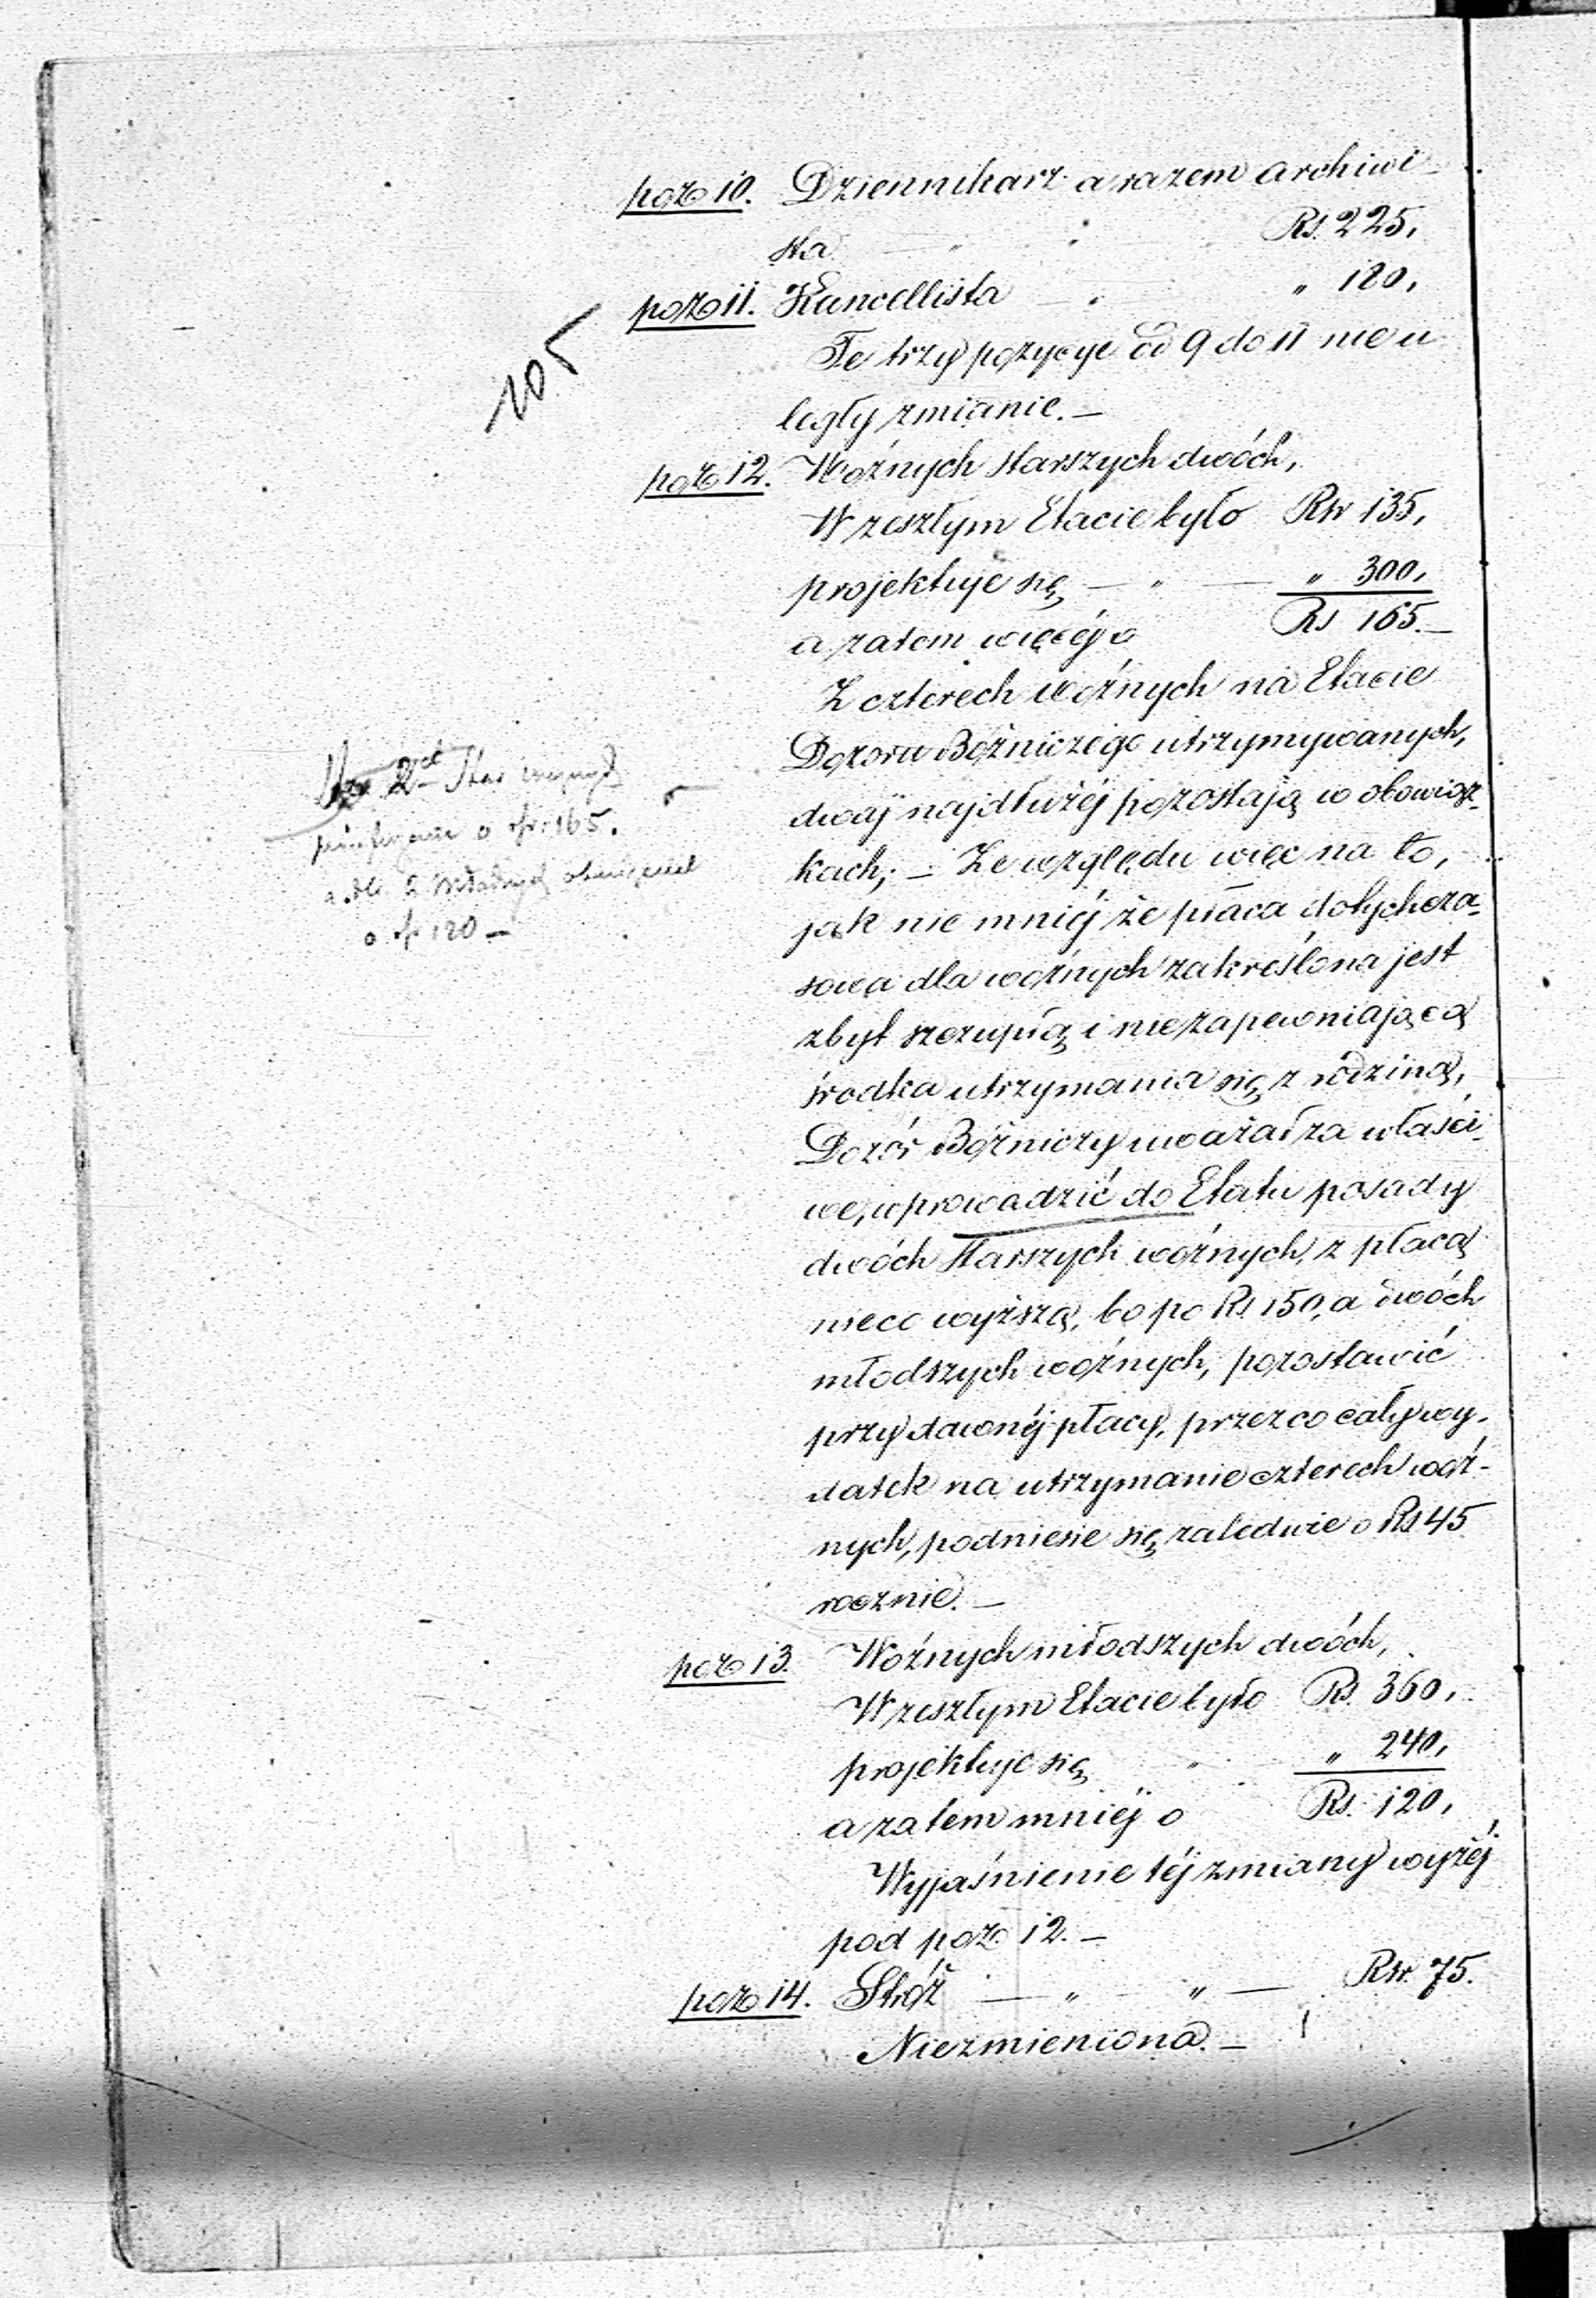 poz 10. Dziennikarz a razem archiwi-
sta " Rs. 225,
poz 11. Kancellista " 180,
Te trzy pozycye od 9 do 11 nie u
legły zmianie. —
105
poz 12. Woźnych starszych dwóch,
W zeszłym Etacie było Rsr 135,
projektuje się — " — " 300,
a zatem więcéj o Rs 165. —
Z czterech woźnych na Etacie
Dozoru Bożniczego utrzymywanych,
dwaj najdłużéj pozostają w obowiąz-
kach; — Ze względu więc na to,
jak nie mniéj że płaca dotychcza-
sowa dla woźnych zakreślona jest
zbyt szczupłą i niezapewniającą
środka utrzymania się z rodziną,
Dozór Bożniczy uważał za właści-
we, wprowadzić do Etatu posady
dwóch starszych woźnych, z płacą
nieco wyższą, bo po Rs 150, a dwóch
młodszych woźnych, pozostawić
przy dawnéj płacy, przez co cały wy-
datek na utrzymanie czterech woź-
nych, podniesie się zaledwie o Rs 45
rocznie. —
2ch Star
o rsr: 165.
a dla 2 Młodszych
o rsr 120 —
poz 13. Woźnych młodszych dwóch,
W zeszłym Etacie było Rs. 360,
projektuje się " " 240,
a zatem mniéj o Rs. 120,
Wyjaśnienie téj zmiany wyżéj
pod poz. 12. —
poz 14. Stróż — " " — Rsr. 75.
Niezmieniona. —